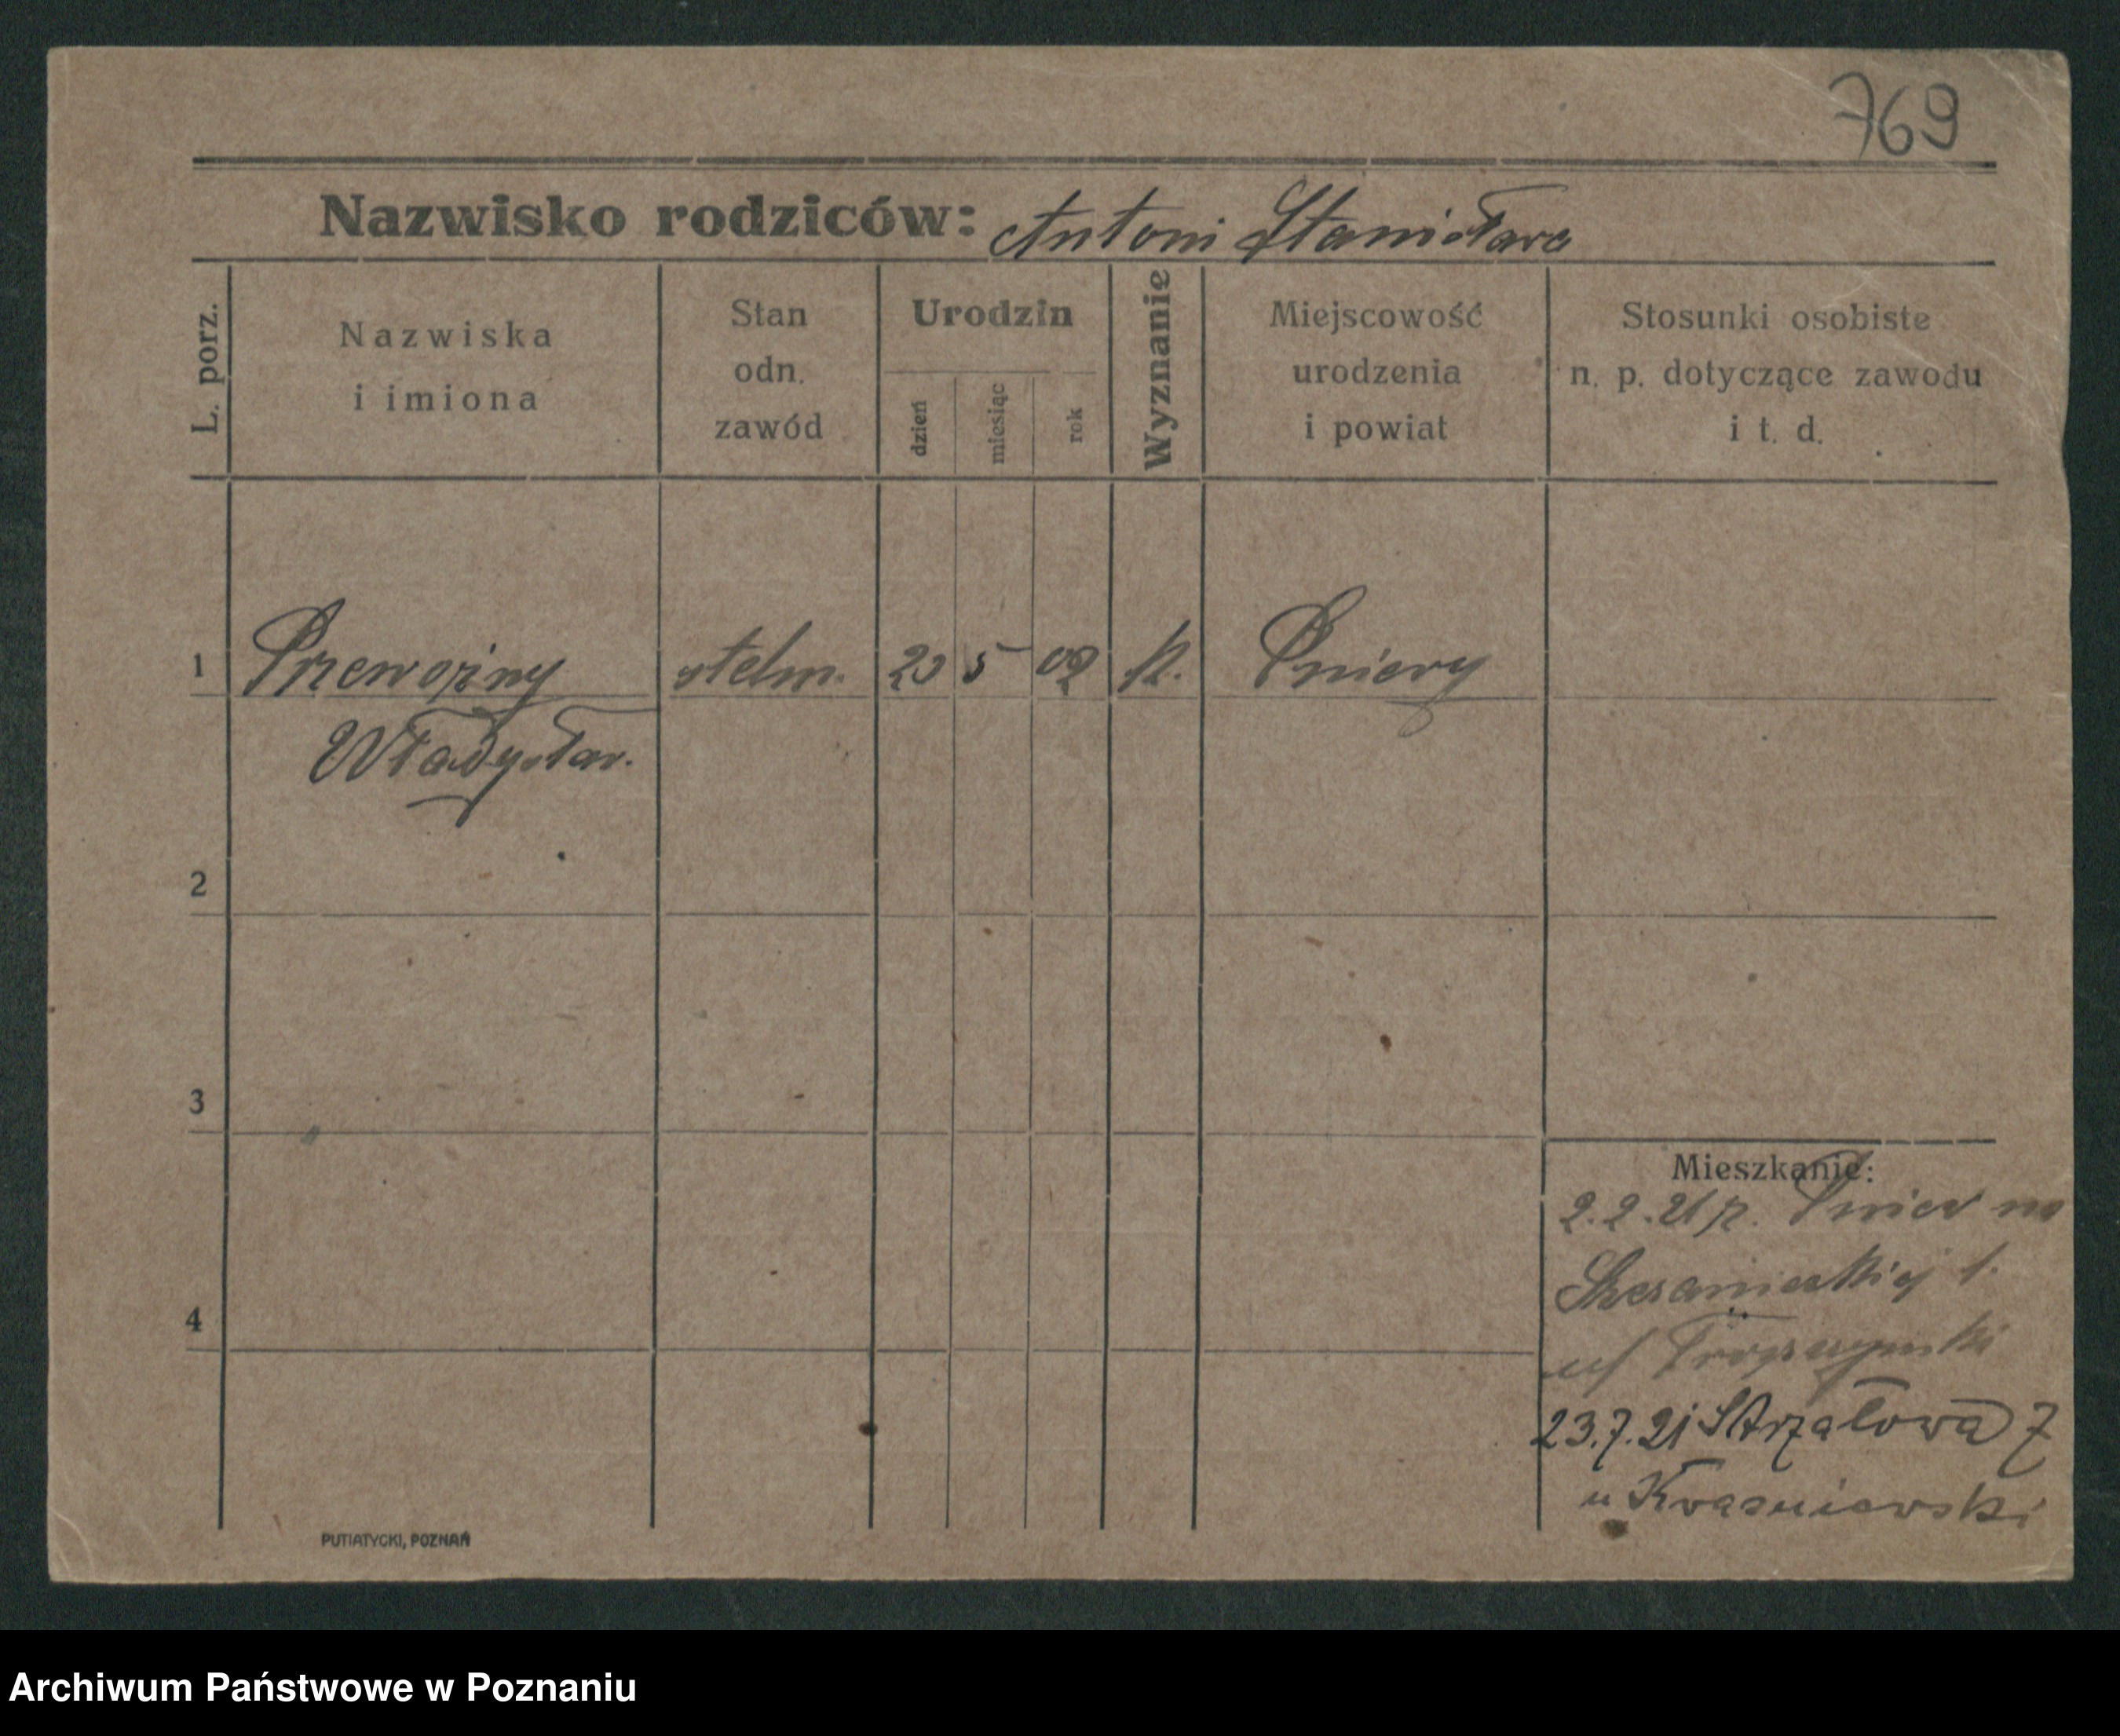 769
Nazwisko rodziców: Antoni Stanisława
L. porz.
Nazwiska
i imiona
Stan
odn.
zawód
Urodzin
dzień
miesiąc
rok
Wyznanie
Miejscowość
urodzenia
i powiat
Stosunki osobiste
n. p. dotyczące zawodu
i t. d.
1 Przewoźny stelm. 20 5 02 k. Pniewy
Władysław.
2
3
4
Mieszkanie:
2.2.21 z. Pniew na
1.
23.7.21 Strzałowa 7
u Kwaśniewski
PUTIATYCKI, POZNAŃ
Archiwum Państwowe w Poznaniu